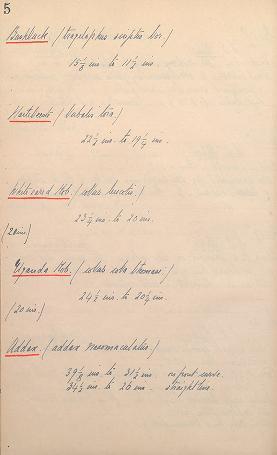 5
Bushbuck. (tragelaphus scriptus bor.)
15½ ins. to 11½ ins.
Hartebeeste. (bubalis tora.)
22½ ins. to 19¼ ins.
White eared Kob. (cobus leucotis.)
23¼ ins. to 20 ins.
(20 ins.)
Uganda Kob. (cobus cobs thomasi.)
24½ ins. to 20¼ ins.
(20 ins.)
Addax. (addax nasomaculatus.)
39⅛ ins. to 31½ ins. on front curve.
34½ ins. to 26 ins. straight line.